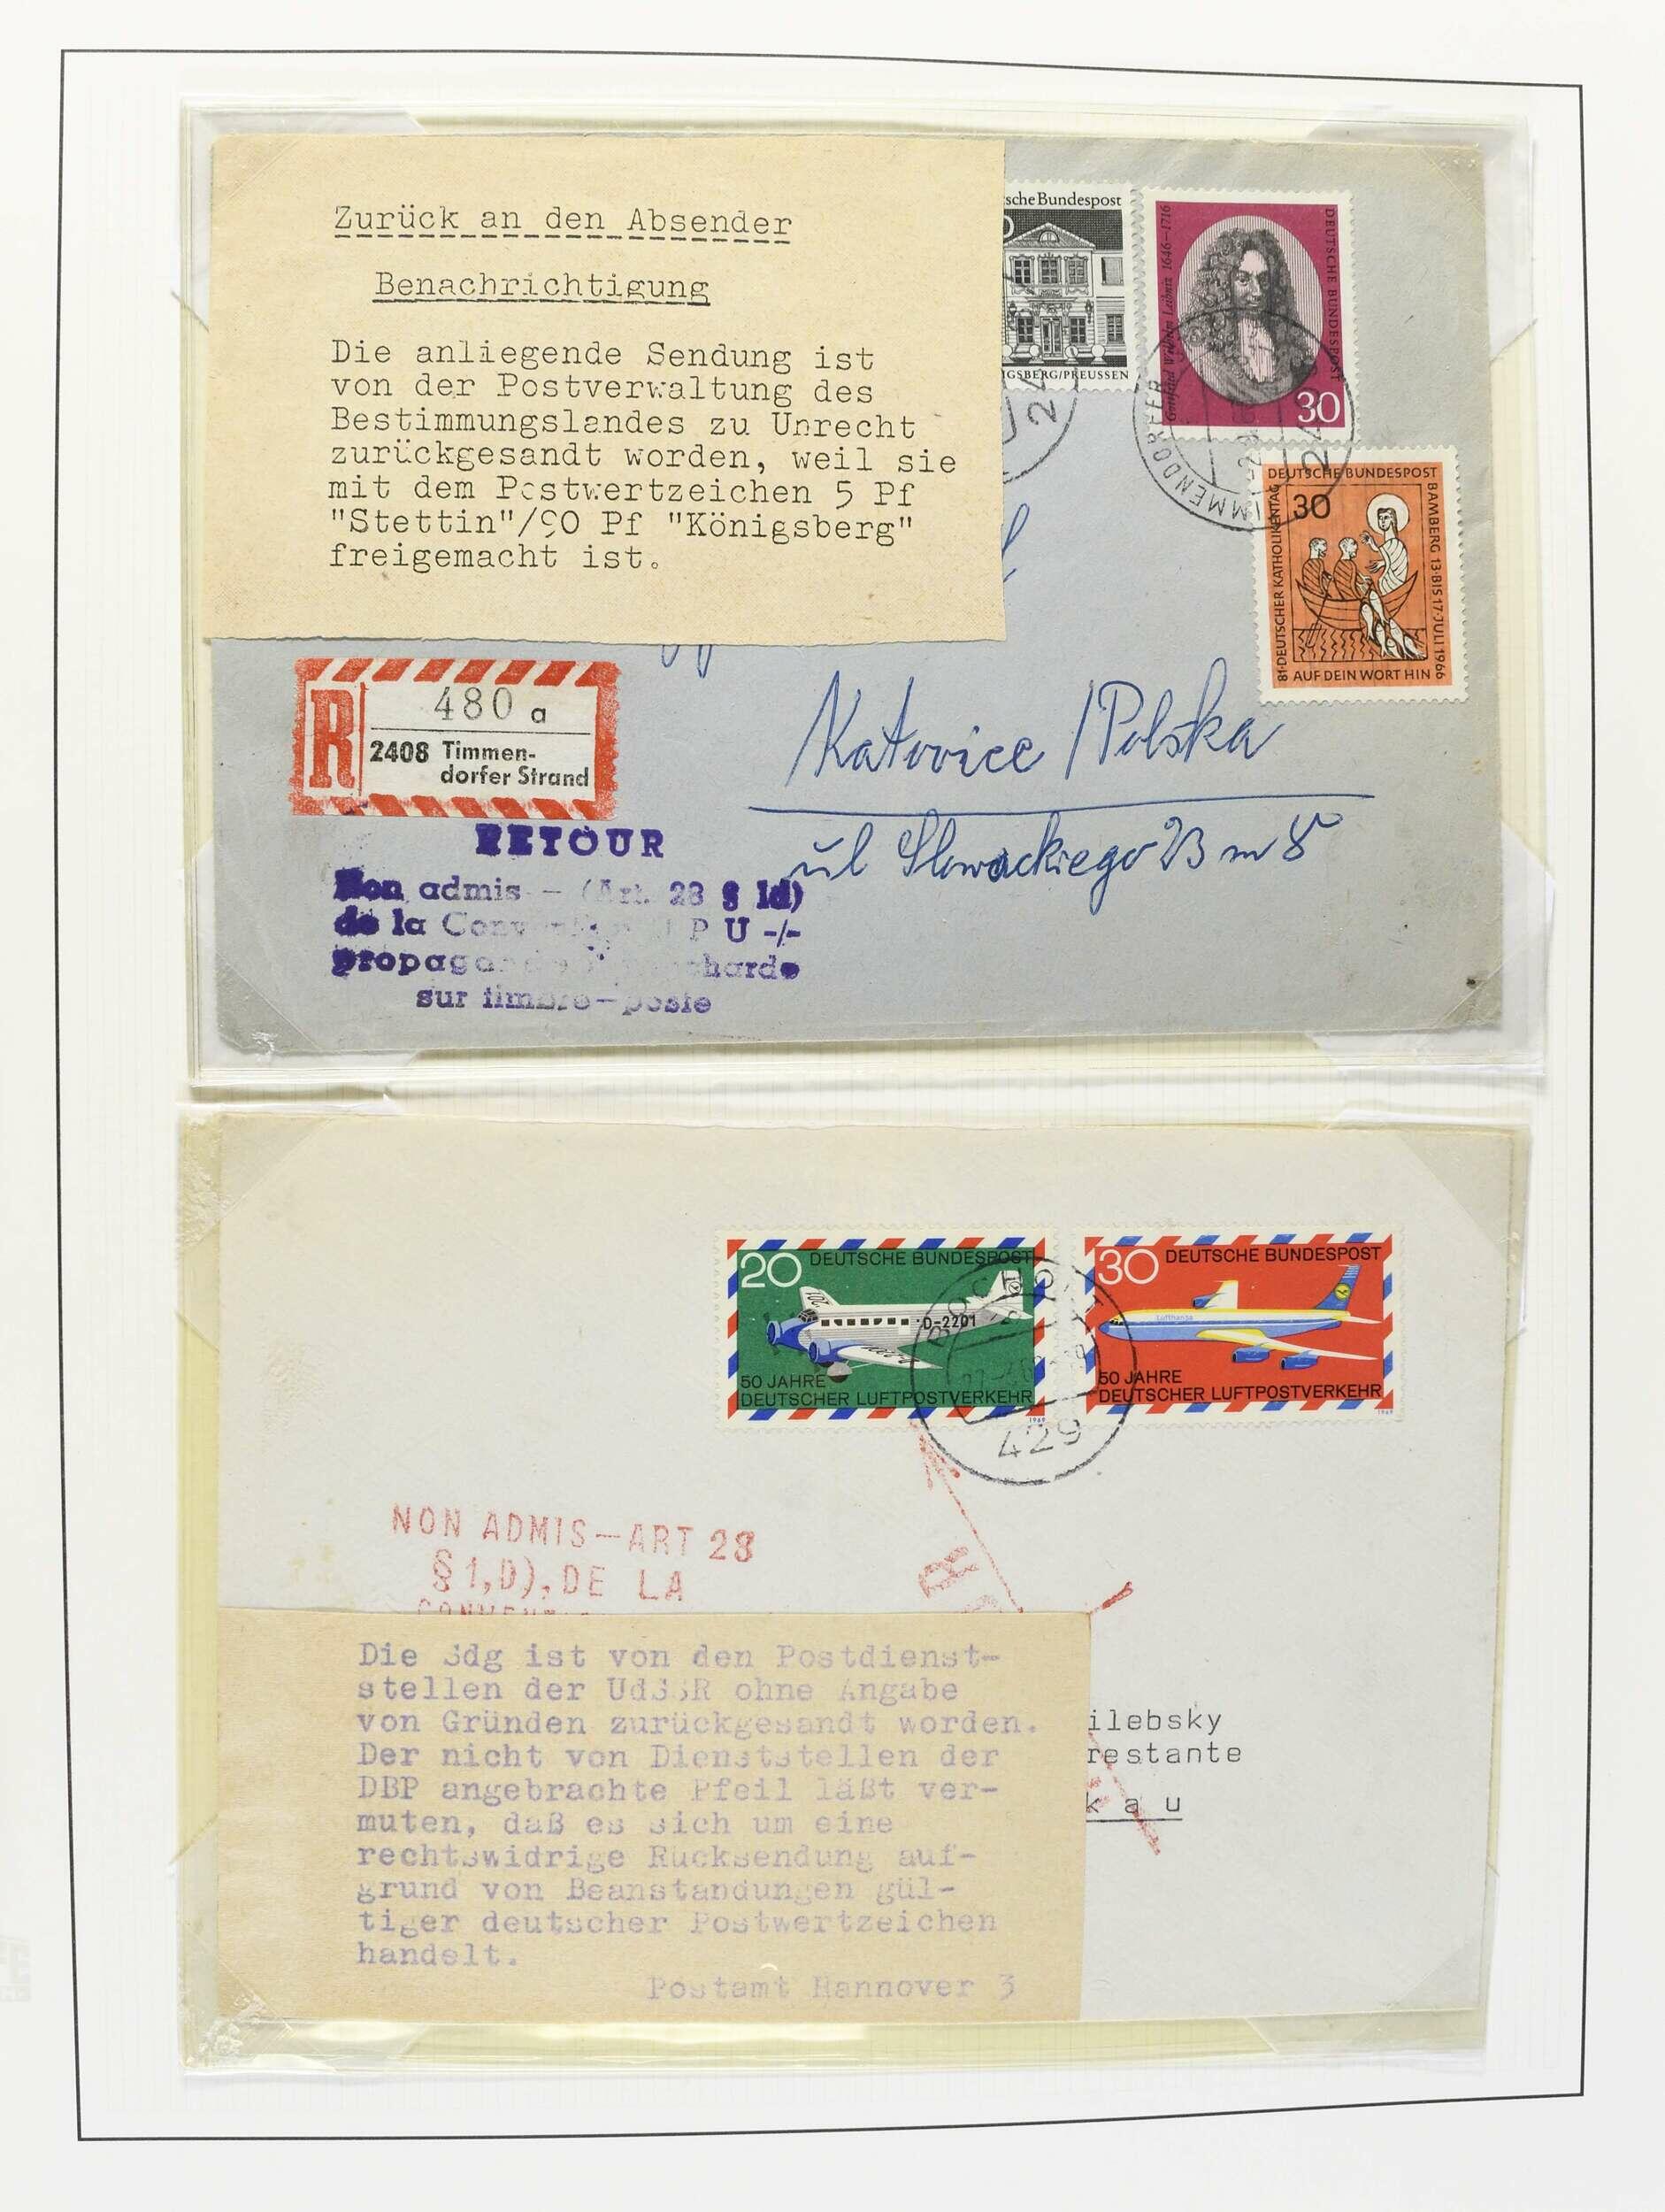 Zurück an den Absender
Benachrichtigung
Die anliegende Sendung ist
von der Postverwaltung des
Bestimmungslandes zu Unrecht
zurückgesandt worden, weil sie
mit dem Postwertzeichen 5 Pf
"Stettin"/90 Pf "Königsberg"
freigemacht ist.
sche Bundespost
IGSBERG/PREUSSEN
24
Gottfried Wilhelm Leibniz 1646–1716
DEUTSCHE BUNDESPOST
30
IMMENDORFER
24
DEUTSCHE BUNDESPOST
30
81·DEUTSCHER KATHOLIKENTAG
BAMBERG 13·BIS 17·JULI 1966
AUF DEIN WORT HIN
R
480 a
2408 Timmen-
dorfer Strand
Katovice / Polska
ul Slowackiego 23 m 8
RETOUR
Non admis – (Art. 28 § 1d)
de la U P U -/-
sur timbre–poste
20 DEUTSCHE BUNDESPOST
D-2201
50 JAHRE
DEUTSCHER LUFTPOSTVERKEHR
1969
30 DEUTSCHE BUNDESPOST
Lufthansa
50 JAHRE
DEUTSCHER LUFTPOSTVERKEHR
1969
429
NON ADMIS–ART 28
§ 1,D), DE LA
Die Sdg ist von den Postdienst-
stellen der UdSSR ohne Angabe
von Gründen zurückgesandt worden.
Der nicht von Dienststellen der
DBP angebrachte Pfeil läßt ver-
muten, daß es sich um eine
rechtswidrige Rücksendung auf-
grund von Beanstandungen gül-
tiger deutscher Postwertzeichen
handelt.
Postamt Hannover 3
ilebsky
restante
k a u